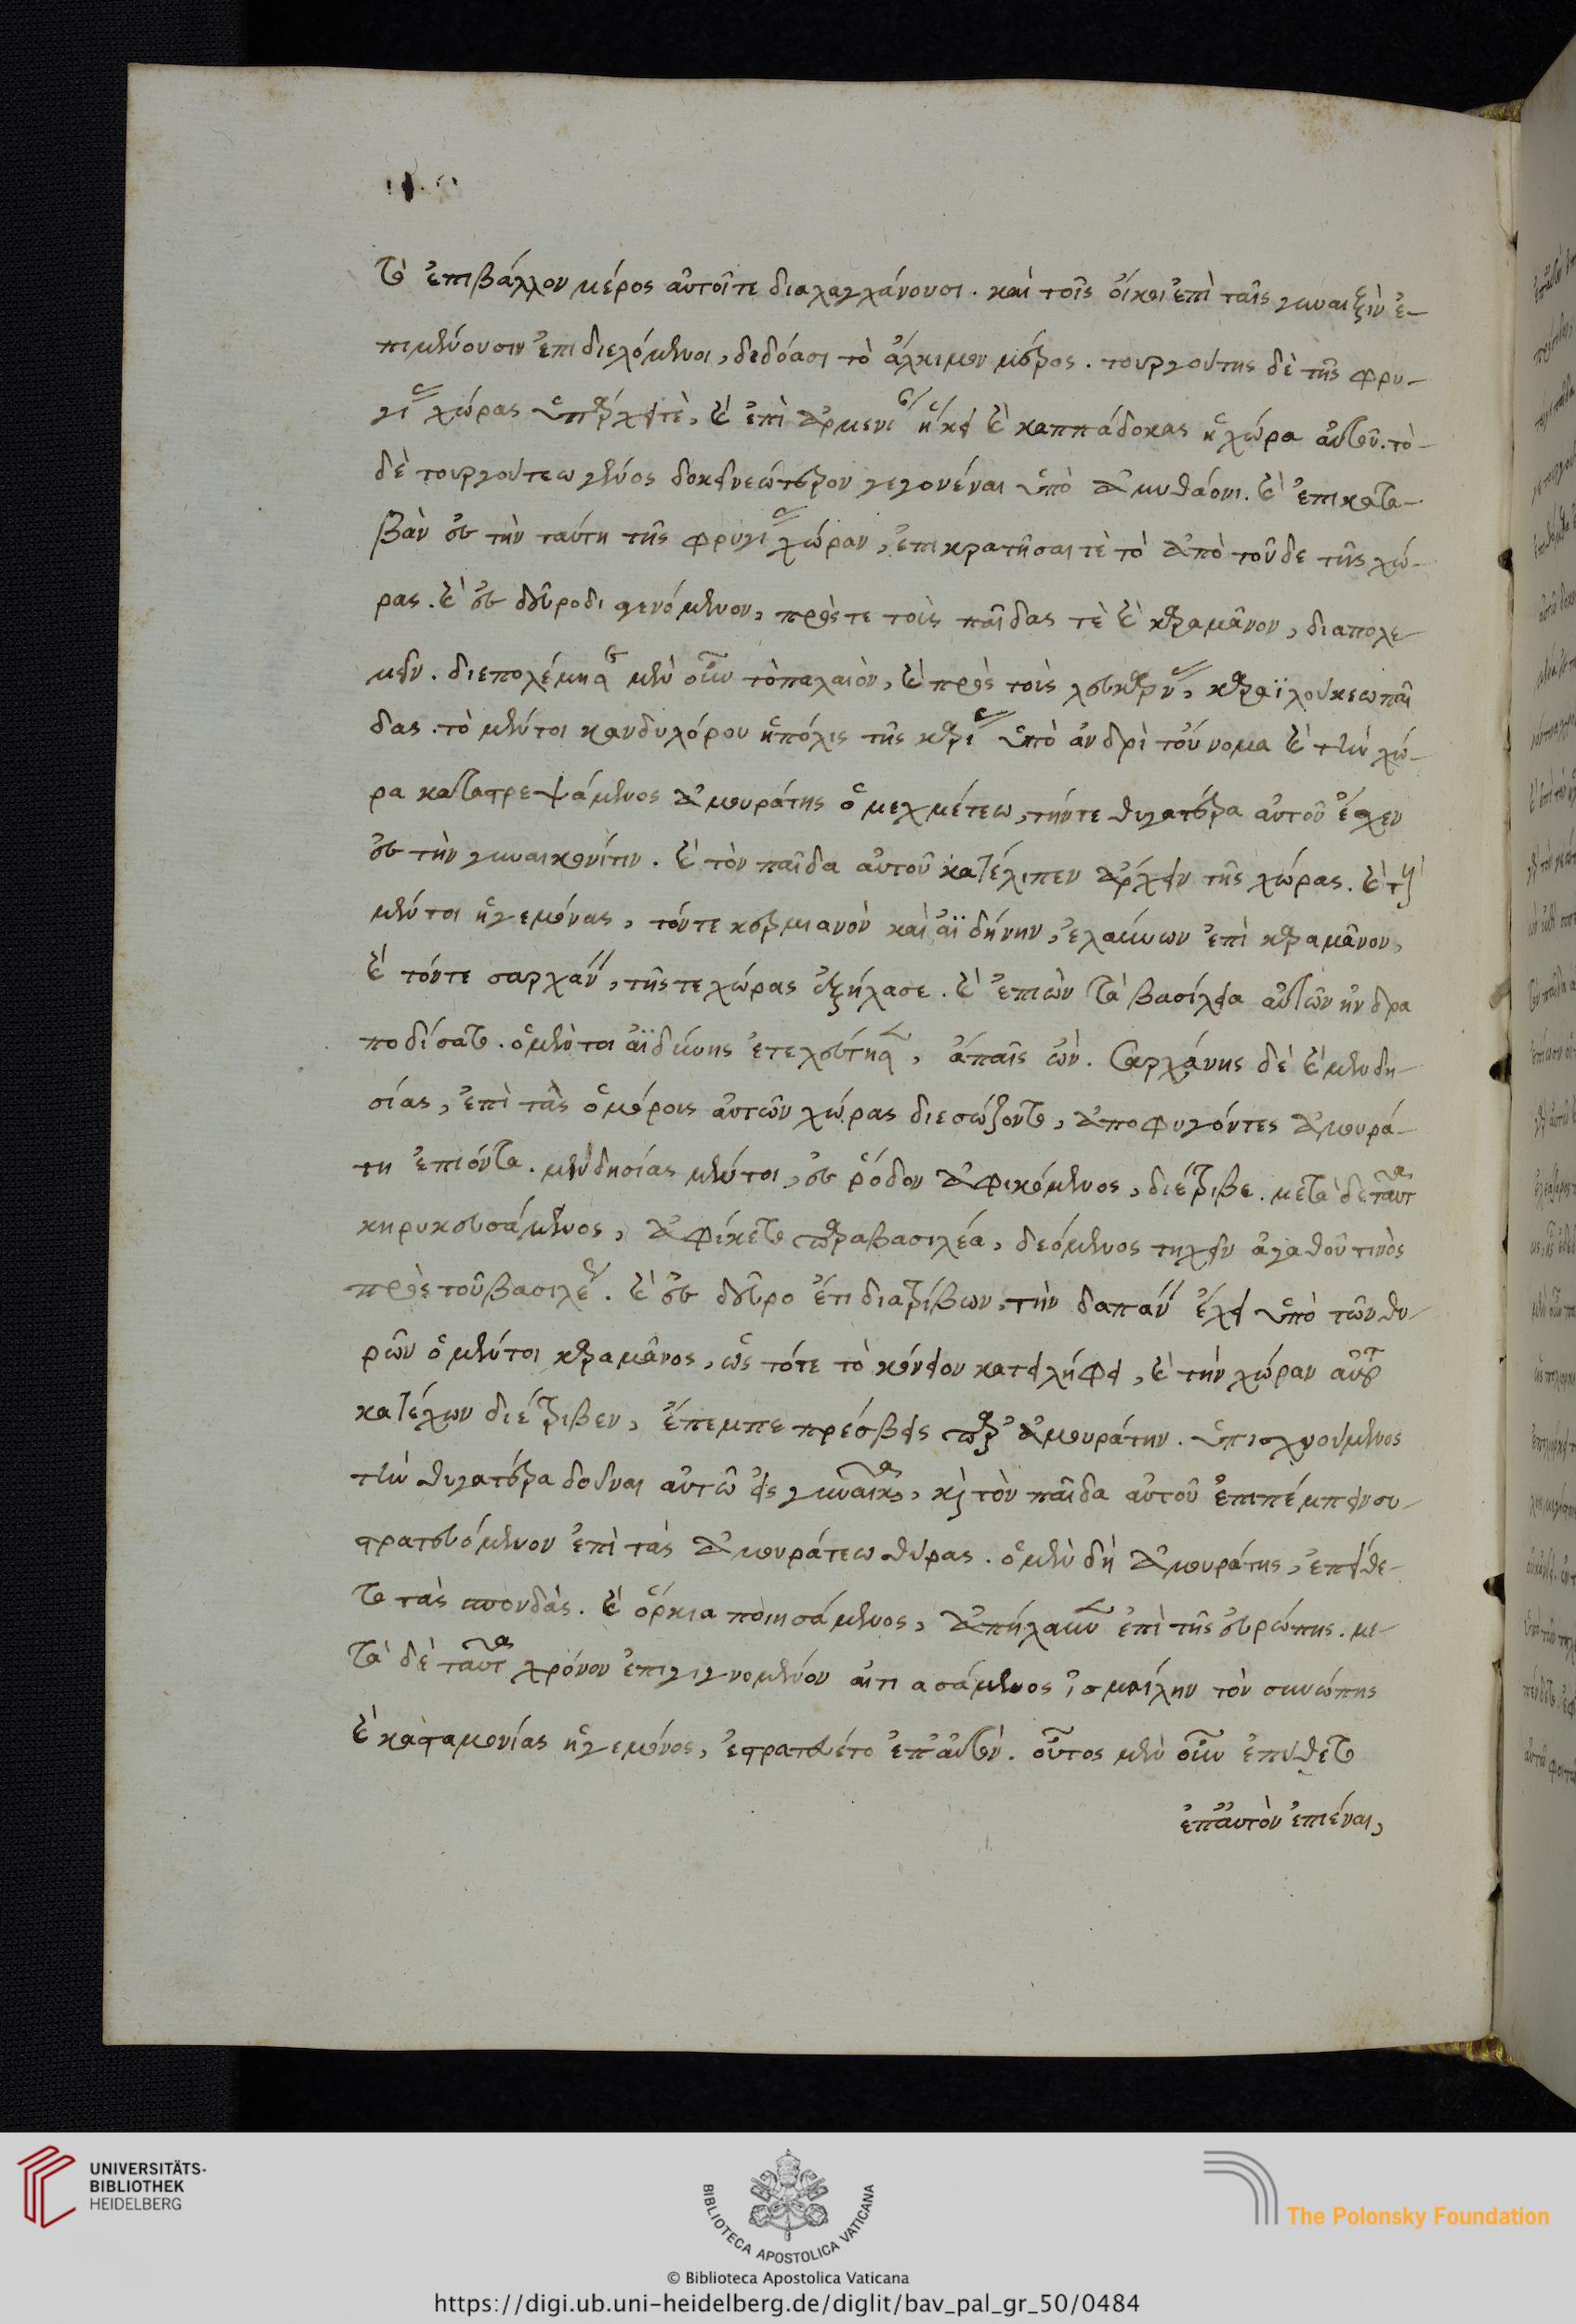 τὸ ἐπιβάλλον μέρος αὐτοί τε διαλαγχάνουσι. καὶ τοῖς οἴκοι ἐπὶ ταῖς γυναιξὶν ἐ-
πιμένουσιν ἐπιδιελόμενοι, διδόασι τὸ ἄλκιμον μέρος. τουργούτης δὲ τῆς φρυ-
γίας χώρας ὑπάρχει τὲ, καὶ ἐπὶ ἀρμενίους ἥκει καὶ καππάδοκας ἡ χώρα αὐτοῦ. τὸ
δὲ τουργούτεω γένος δοκεῖ νεώτερον γεγονέναι ὑπὸ ἀμυθάονι. καὶ ἐπικατα-
βὰν εὐ τὴν ταύτῃ τῆς φρυγίας χώραν, ἐπικρατῆσαί τε τὸ ἀπὸ τοῦδε τῆς χώ-
ρας. καὶ εὐ δεῦρο διαγενόμενον, πρός τε τοὺς παῖδας τὲ καὶ καραμᾶνον, διαπολε-
μεῖν. διεπολέμησαν μὲν οὖν τὸ παλαιὸν, καὶ πρὸς τοὺς λευκάρνας, καραϊλούκεω παῖ
δας. τὸ μέντοι κανδυλόρου ἡ πόλις τῆς καρίας ὑπὸ ἀνδρὶ τοὔνομα καὶ τὴν χώ-
ρα καταστρεψάμενος ἀμουράτης ὁ μεχμέτεω, τήν τε θυγατέρα αὐτοῦ ἔσχεν
εὐ τὴν γυναικωνίτιν. καὶ τὸν παῖδα αὐτοῦ κατέλιπεν ἄρχειν τῆς χώρας. καὶ τοὺς
μέντοι ἡγεμόνας, τόν τε κερμιανὸν καὶ ἀϊδήνην, ἐλαύνων ἐπὶ καραμᾶνον,
καὶ τόν τε σαρχάνην, τῆς τε χώρας ἐξήλασε. καὶ ἐπιὼν τὰ βασίλεια αὐτῶν ἠνδρα
ποδίσατο. ὁ μέντοι ἀϊδίνης ἐτελεύτησεν, ἄπαις ὤν. Σαρχάνης δὲ καὶ μενδη-
σίας, ἐπὶ τὰς ὁμόρους αὐτῶν χώρας διεσώζοντο, ἀποφυγόντες ἀμουρά-
τη ἐπιόντα. μενδησίας μέντοι, εὐ ῥόδον ἀφικόμενος, διέτριβε. μετὰ δὲ ταῦτα
κηρυκευσάμενος, ἀφίκετο παρὰ βασιλέα, δεόμενος τυχεῖν ἀγαθοῦ τινὸς
πρὸς τοῦ βασιλέως. καὶ εὐ δεῦρο ἔτι διατρίβων, τὴν δαπάνην ἔχει ὑπὸ τῶν θυ-
ρῶν ὁ μέντοι καραμᾶνος, ὡς τότε τὸ κόνειον κατειλήφει, καὶ τὴν χώραν αὐτοῦ
κατέχων διέτριβεν, ἔπεμπε πρέσβεις παρὰ ἀμουράτην. ὑπισχνούμενος
τὴν θυγατέρα δοῦναι αὐτῷ εἰς γυναῖκα, καὶ τὸν παῖδα αὐτοῦ ἐπιπέμπειν συ-
στρατευόμενον ἐπὶ τὰς ἀμουράτεω θύρας. ὁ μὲν δὴ ἀμουράτης, ἐπείθε-
το τὰς σπονδὰς. καὶ ὅρκια ποιησάμενος, ἀπήλαυνεν ἐπὶ τῆς εὐρώπης. με-
τὰ δὲ ταῦτα χρόνον ἐπιγιγνομένον αἰτιασάμενος ἰσμαίλην τὸν σινώπης
καὶ κασταμονίας ἡγεμόνος, ἐστρατεύετο ἐπ' αὐτὸν. οὗτος μὲν οὖν ἐπύθετο
ἐπ' αὐτὸν ἐπιέναι,
UNIVERSITÄTS-
BIBLIOTHEK
HEIDELBERG
BIBLIOTECA APOSTOLICA VATICANA
The Polonsky Foundation
© Biblioteca Apostolica Vaticana
https://digi.ub.uni-heidelberg.de/diglit/bav_pal_gr_50/0484